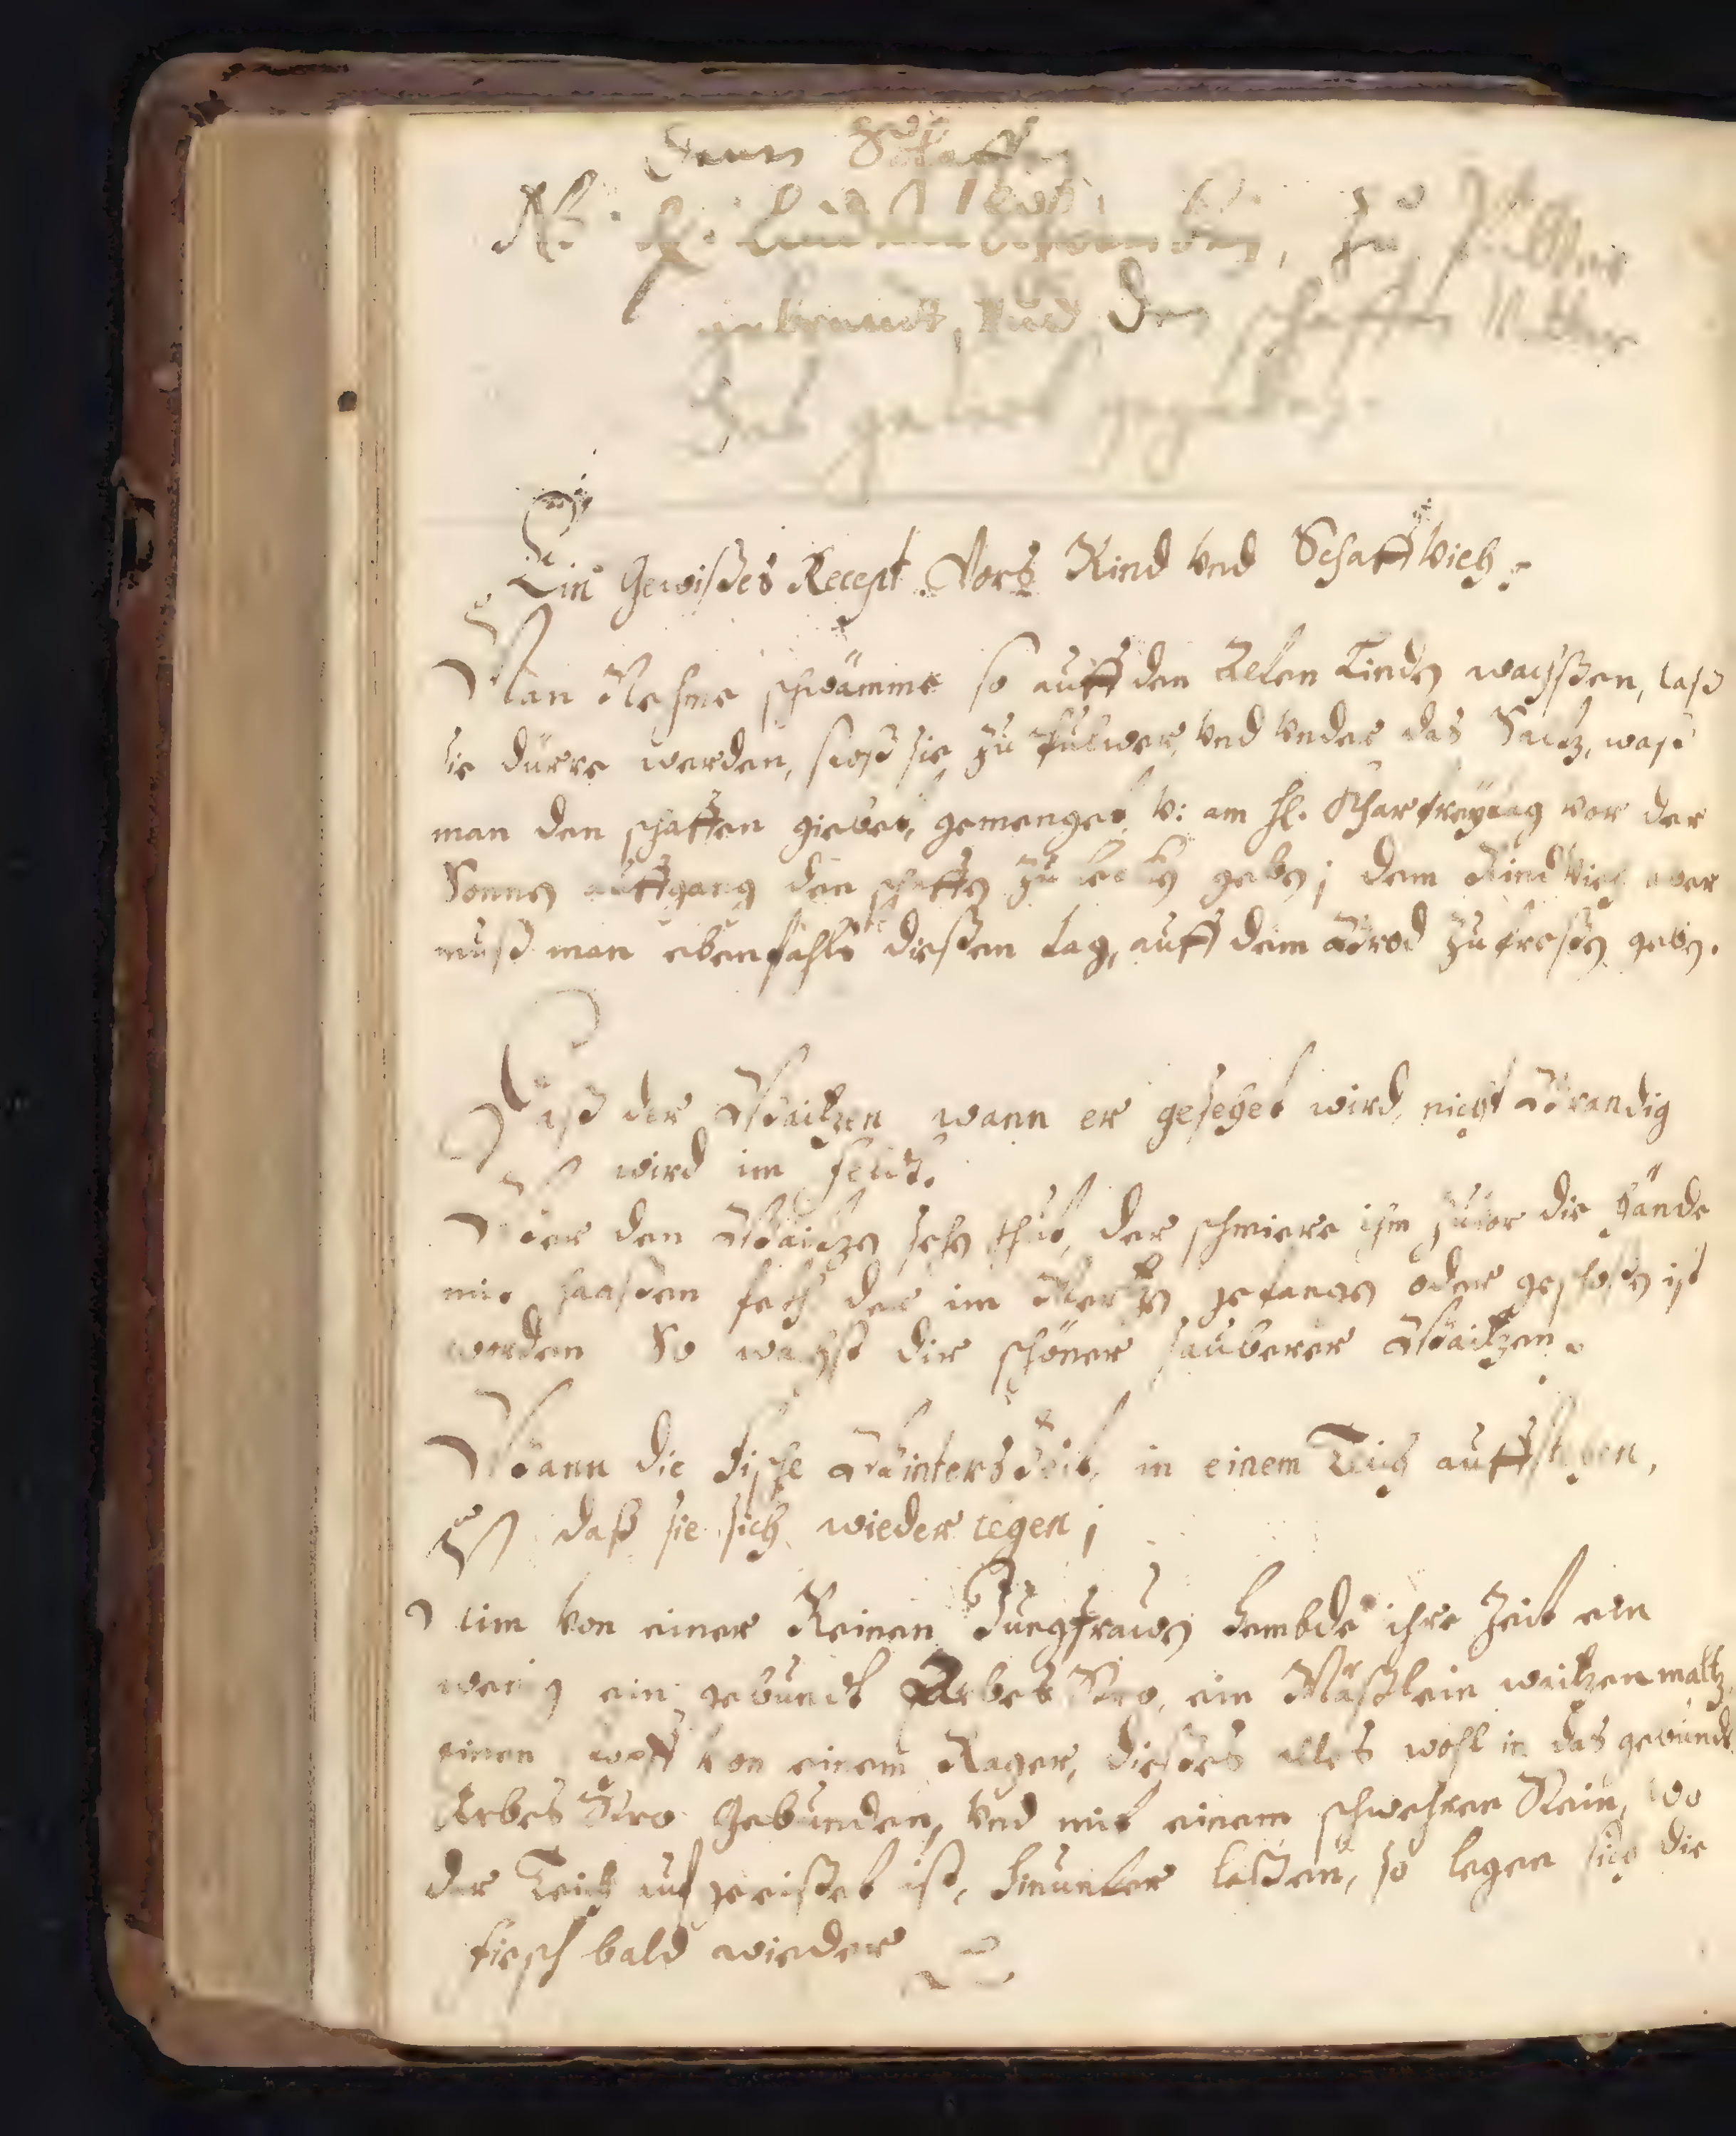 denen Schaffen
NB: zu Pulver
gebrandt, und den schaffen unter
das gelect gegeben.
Ein Gewißes Recept Vors Rind Vnd Schaff Vieh:
Man Nehme schwämme so auff den Alten Linden wachßen, laß
sie dürre werden, stoß sie zu Pulver, Vnd Vnder das Saltz, waß
man den schaffen giebet, gemenget, V: am hl. Charfreytag vor der
Sonnen auffgang den schaffen zu lecken geben; dem Rind Vieh aber
muß man ebenfahls dießen tag, auff dem Brod zu freßen geben.
Daß der Waitzen wann er geseyet wird, nicht Brandig
wird im feldt.
Wer den Waitzen sehen thut, der schmiere ihm zuvor die Hände
mit haasßen fech der im Mertzen gefangen oder geschoßen ist
worden So wachst dir schöner sauberer Waitzen.
Wann die fische Winterszeit, in einem Teich auffstehen,
daß sie sich wieder legen;
Nim Von einer Reinen Jungfrawen Hembde ihre Zeit ein
wenig ein gebundt Arbes Stro, ein Mäßlein waitzen maltz,
einen Von einem Rager, dießes alles wohl in das gebundt
Arbes Stro Gebunden, Vnd mit einem schwehren Stein, wo
der Teich auf geeißet ist, hinunter laßen, so legen sich die
fisch bald wieder